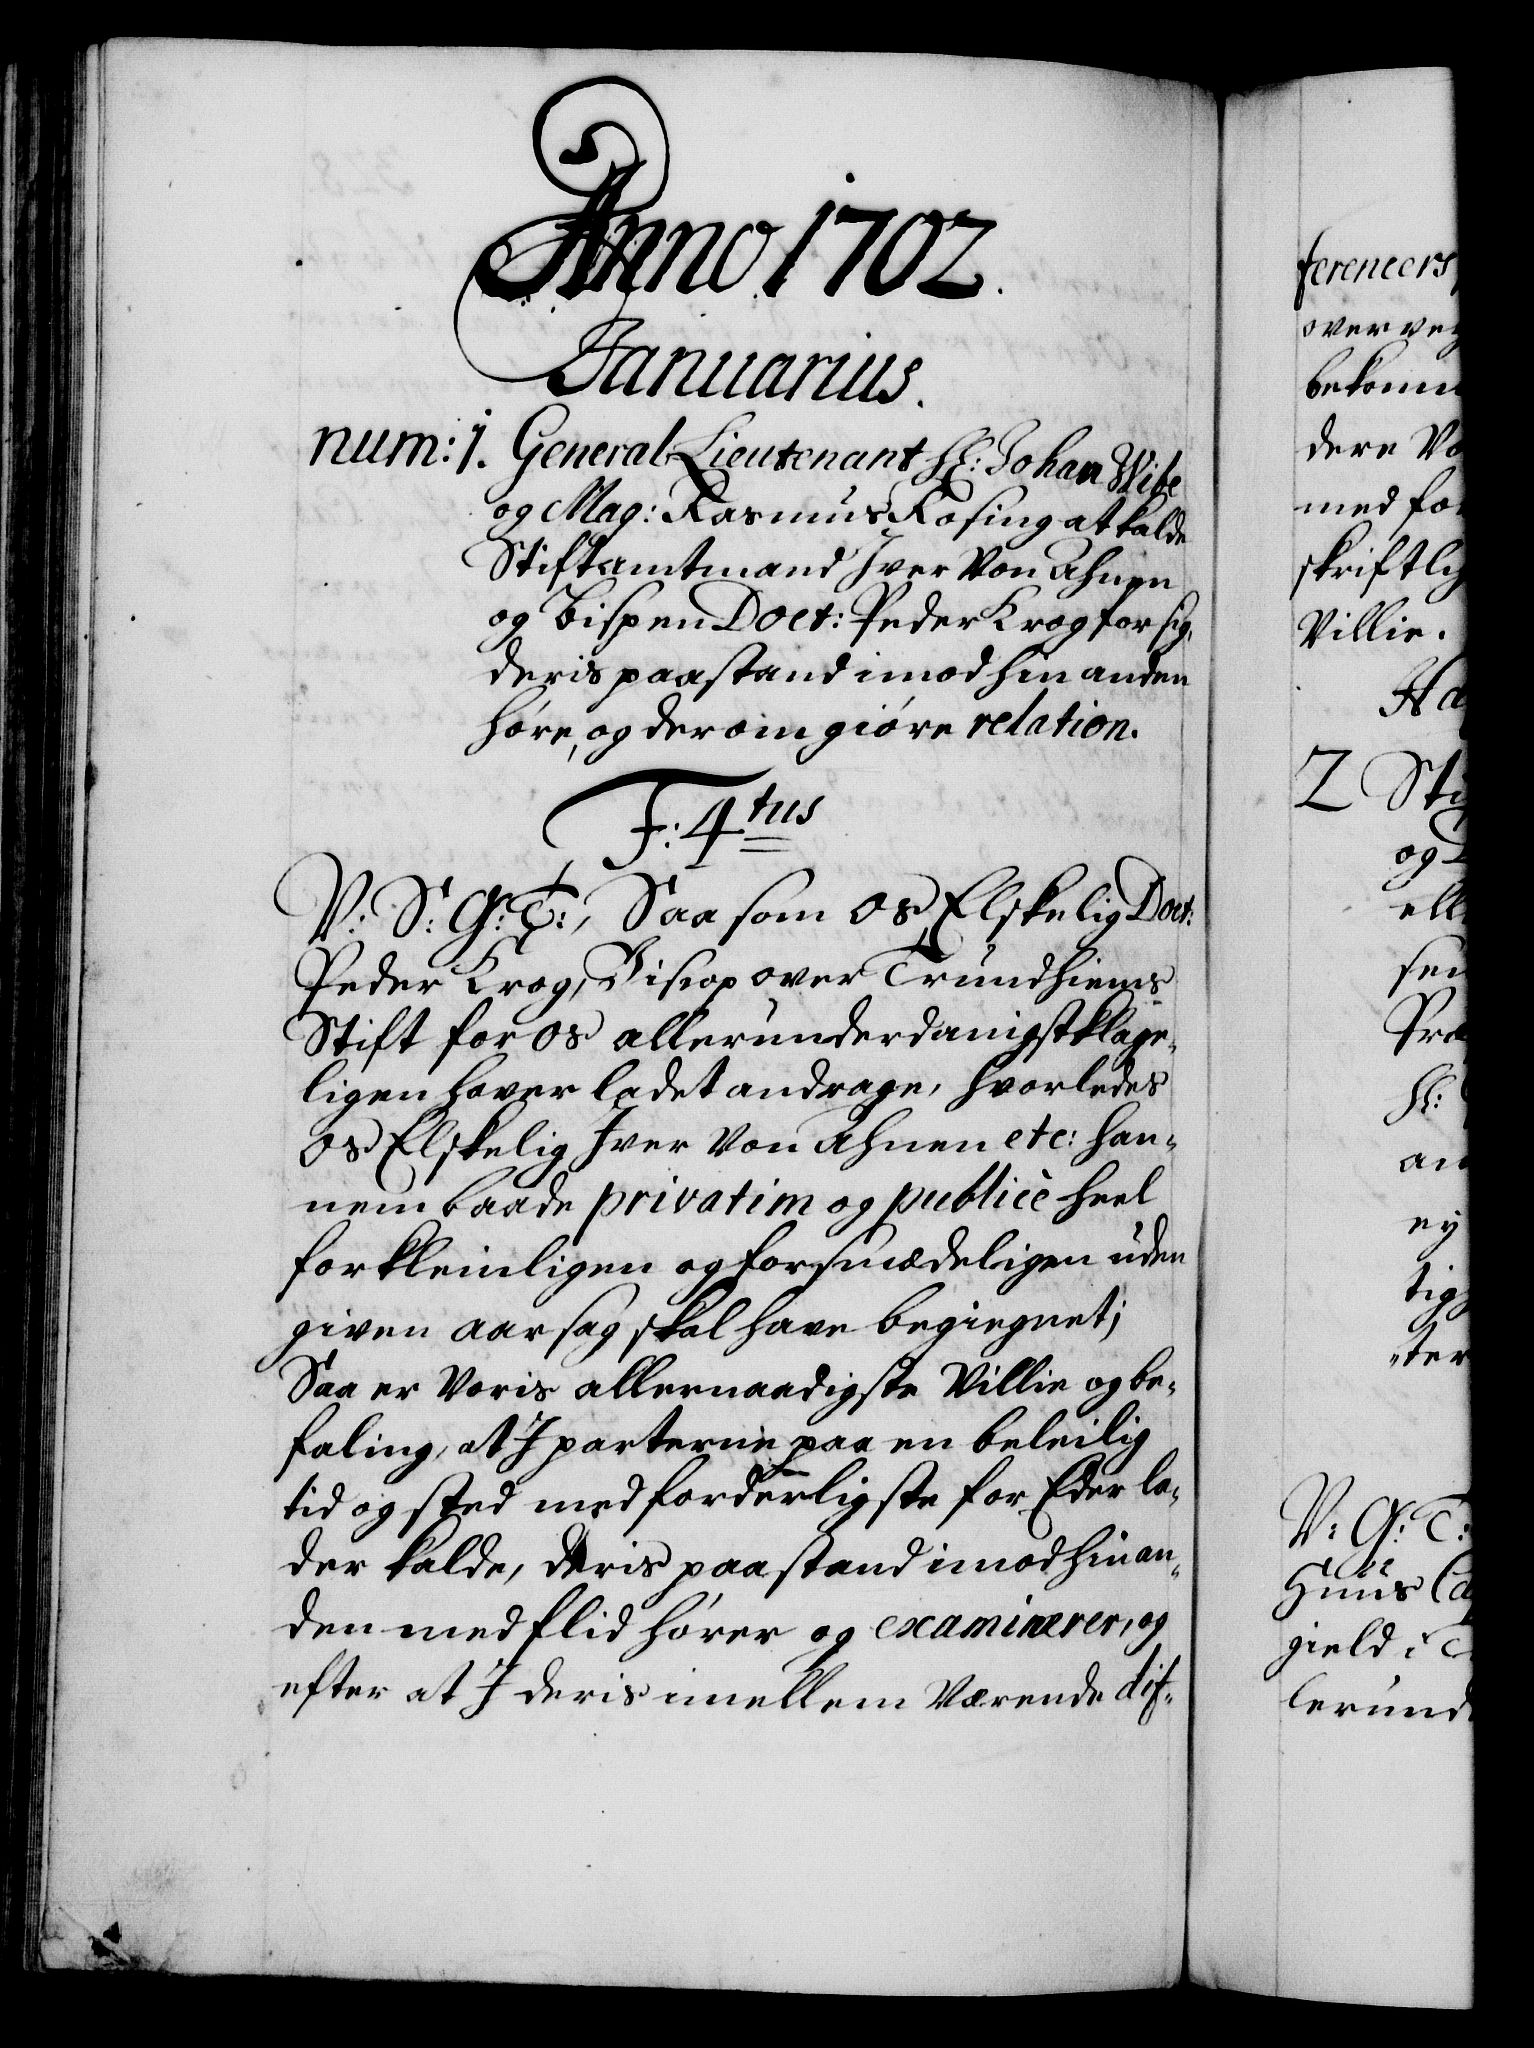 Anno 1702.
Januarius.
num: 1. General Lieutenant H: Johan Wibe
og Mag: Rasmus Rosing at kalde
Stiftamtmand Iver Von Ahnen
og Bispen Doct: Peder Krog for sig,
deris paastand imod hin anden
høre, og derom giøre relation.
F: 4tus
V: S: G: T:, Saa som os Elskelig Doct:
Peder Krog, Biscop over Trundhiems
Stift for os allerunderdanigst klage-
ligen haver ladet andrage, hvorledes
os Elskelig Iver Von Ahnen etc: han-
nem baade privatim og publicè heel
forkleinligen og forsmædeligen uden
given aarsag skal have begiegnet;
Saa er Voris allernaadigste Villie og be-
faling, at I parterne paa en beleilig
tid og sted med forderligste for Eder la-
der kalde, deris paastand imod hin an-
den med flid hører og examinerer, og
efter at I deris imellem Værende dif-
ferencers
over veg
bekomm
dere Vo
med for
skriftlig
Villie.
2 Sti
og
ell
sen
Præ
H:
an
ey
tig
ter
V: G: T:
Huus Ca
gield i T
lerund